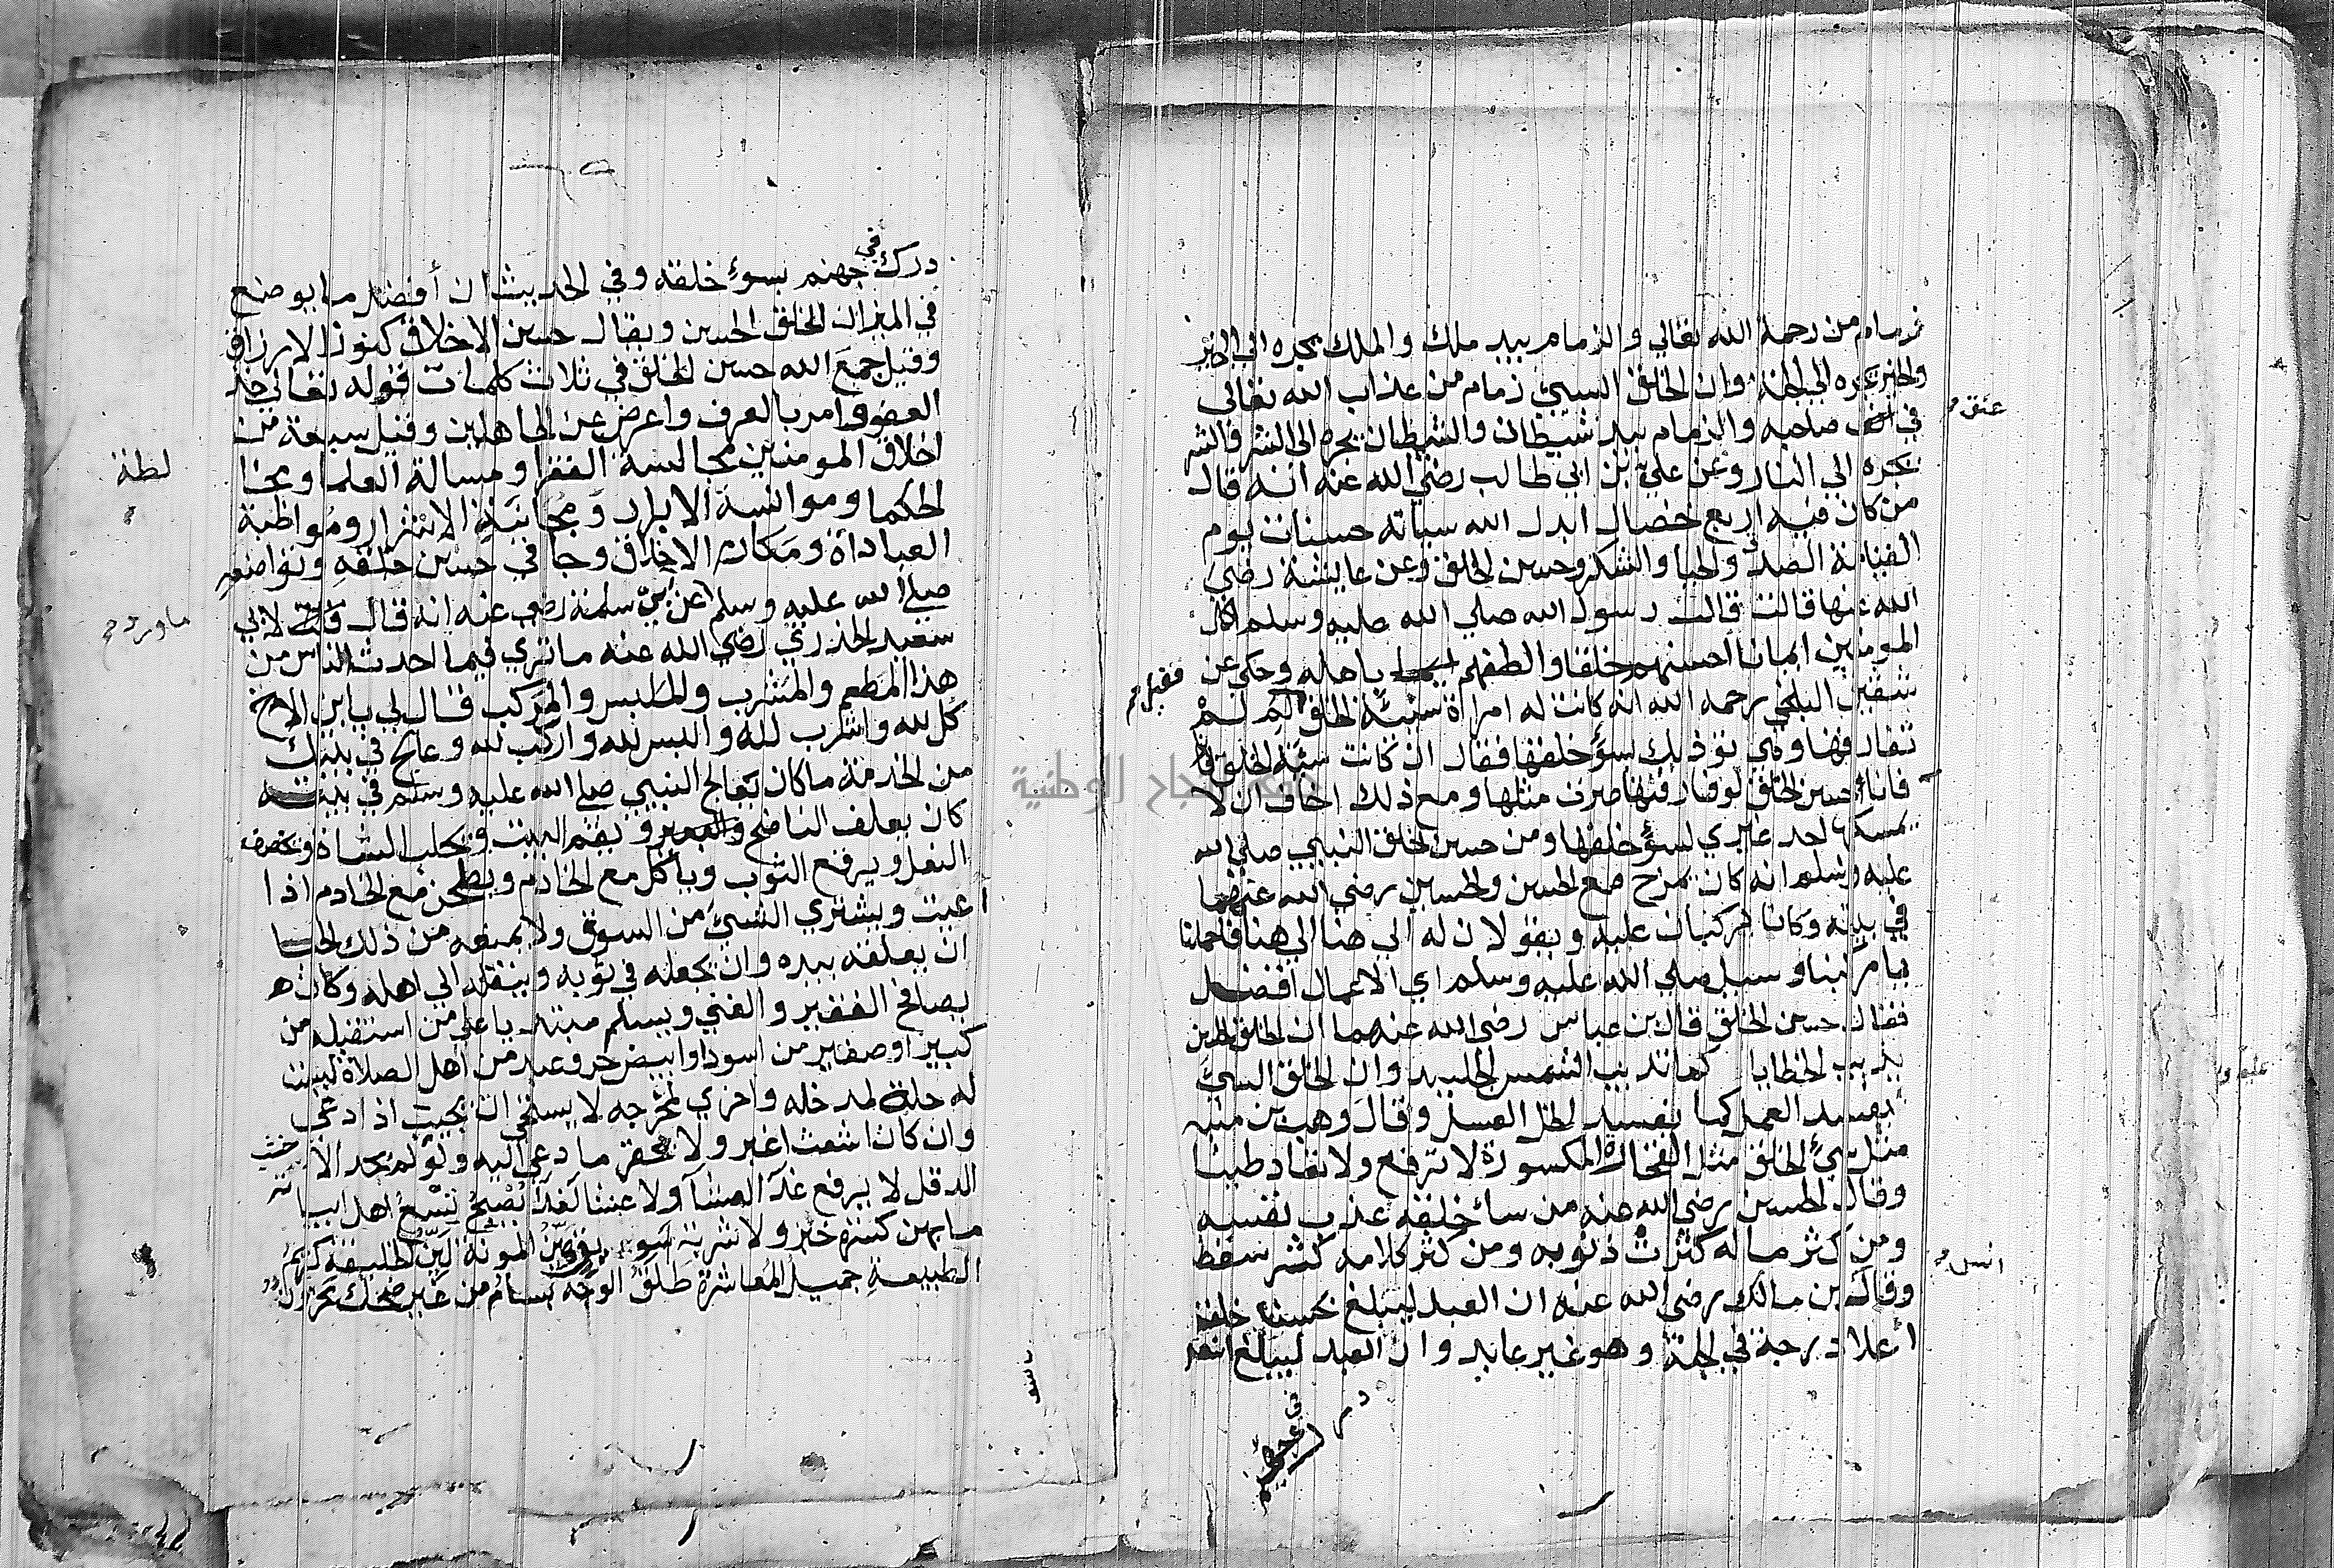 زمام من رحمة الله تعالي والزمام بيد ملك والملك يجره الي الخير
والخير يجره الي الجنة وان الخلق السيئ زمام من عذاب الله تعالي
عنق
في صاحبه والزمام بيد شيطان والشيطان يجره الي الشر والشر
يجره الي النار وعن علي بن ابي طالب رضي الله عنه انه قال
من كان فيه اربع خصال ابدل الله سياته حسنات يوم
القيامة الصدق والحيا والشكر وحسن الخلق وعن عايشة رضي
الله عنها قالت قال رسول الله صلي الله عليه وسلم اكمل
المومنين ايمانا احسنهم خلقا والطفهم باهله وحكي عن
شقيق البلخي رحمه الله انه كانت له امراة سيئة الخلق لم لم
فقيل
تفارقها وهي توذيك بسوء خلقها فقال ان كانت سيئة الخلق
فانا حسن الخلق لو فارقتها صرت مثلها ومع ذلك اخاف ان لا
يمسكها احد غيري لسوء خلقها ومن حسن الخلق النبي صلي الله
عليه وسلم انه كان يمزح مع الحسن والحسين رضي الله عنهما
في بيته وكانا يركبان عليه ويقولان له الي هنا الي هنا فاحملنا
يا مركبنا وسيل صلي الله عليه وسلم اي الاعمال افضل
فقال حسن الخلق قال بن عباس رضي الله عنهما ان الخلق الحسن
يذيب الخطايا كما تذيب الشمس الجليد وان الخلق السيئ
يفسد العمل كما يفسد الخل العسل وقال وهب بن منبه
مثل سيئ الخلق مثل الفخارة المكسورة لا ترقع ولا تعاد طينا
وقال الحسن رضي الله عنه من ساء خلقه عذب نفسه
ومن كثر ماله كثرت ذنوبه ومن كثر كلامه كثر سقطه
وقال بن مالك رضي الله عنه ان العبد ليبلغ بحسن خلقه
انس
اعلا درجة في الجنة وهو غير عابد وان العبد ليبلغ اسفل
درك في جهنم بسوء خلقه وفي الحديث ان أفضل ما يوضع
في الميزان الخلق الحسن ويقال حسن الاخلاق كنوز الارزاق
وقيل جمع الله حسن الخلق في ثلاث كلمات قوله تعالي خذ
العفو وامر بالعرف واعرض عن الجاهلين وقيل سبعة من
اخلاق المومنين مجالسة الفقرا ومسالة العلما ومخا
لطة
الحكما وموانسة الابرار ومجانبة الاشرار ومواظبة
العبادة ومكارم الاخلاق وجا في حسن خلقه وتواضعه
صلي الله عليه وسلم عن بن سلمة رضي عنه انه قال قلت لابي
سعيد الخذري رضي الله عنه ما تري فيما احدث الناس من
هذا المطعم والمشرب والملبس والمركب فقال لي يا ابن الاخ
كل لله واشرب لله والبس لله واركب لله وعالج في بيتك
من الخدمة ما كان يعالج النبي صلي الله عليه وسلم في بيته
كان يعلف الناضح والبعير ويقم البيت ويحلب الشاة ويخصف
النعل ويرقع الثوب وياكل مع الخادم ويطحن مع الخادم اذا
عيت ويشتري الشيئ من السوق ولا يمنعه من ذلك الحيا
ان يعلقه بيده وان يجعله في ثوبه وينقله الي اهله وكان
يصافح الفقير والغني ويسلم مبتديا علي من استقبله من
كبير او صغير من اسود او ابيض حر وعبد من اهل الصلاة ليست
له حلة لمدخله واخري لمخرجه لا يستحي ان يجيب اذا دعي
وان كان اشعث اغبر ولا يحقر ما دعي اليه ولو لم يجد الا
الدقل لا يرفع غدا لعشا ولا عشا لغدا يصبح تسع اهل ابيا
ما بهن كسرة خبز ولا شربة سويق هين المونة لين الخليقة كريم
الطبيعة جميل المعاشرة طلق الوجه بسام من غير ضحك
جامعة النجاح الوطنية